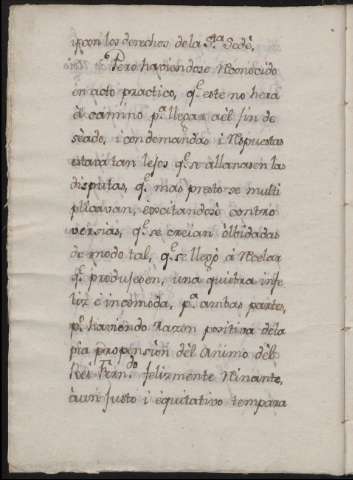 i con los derechos de la S.ta Sede,
6 Pero haviendose Reconocido
en acto practico, q.e este no hera
el camino p.a llegar a el fin de
seado, i con demandas i Respuestas
estava tan lejos q.e se allanasen las
disputas, q.e mas presto se multi
plicavan, excitandose contro
versias, q.e se creian olbidadas
de modo tal, q.e se llegó á Recelar
q.e produjesen, una quiebra infe
liz é incómoda, p.a ambas partes,
p.o haviendo Razon positiva de la
pia propension del Animo del
Rei Fern.do felizmente Reinante,
aun justo i equitativo tempara